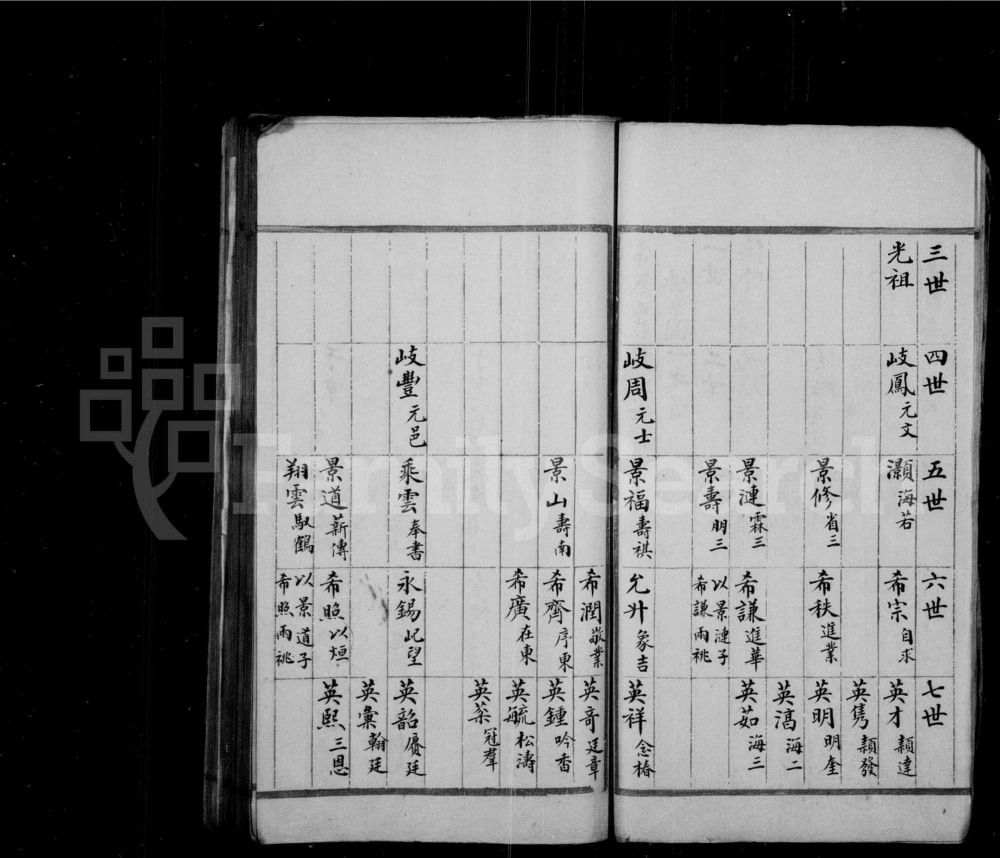 三世
四世
五世
六世
七世
光祖
岐鳳 元文
灝 海若
希宗 自求
英才 穎達
英雋 穎發
景修 省三
希秩 進業
英明 明奎
英滈 海二
景漣 霖三
希謙 進華
英茹 海三
景壽 朋三
以景漣子
希謙兩祧
岐周 元士
景福 壽祺
允升 象吉
英祥 念椿
希潤 敬業
英奇 廷章
景山 壽南
希齊 序東
英鍾 吟香
希廣 在東
英毓 松濤
英棻 冠羣
岐豐 元邑
乘雲 奉書
永錫 屺望
英韶 賡廷
英彙 翰廷
景道 薪傳
希照 以烜
英熙 三恩
翔雲 馭鶴
以景道子
希照兩祧
FamilySearch